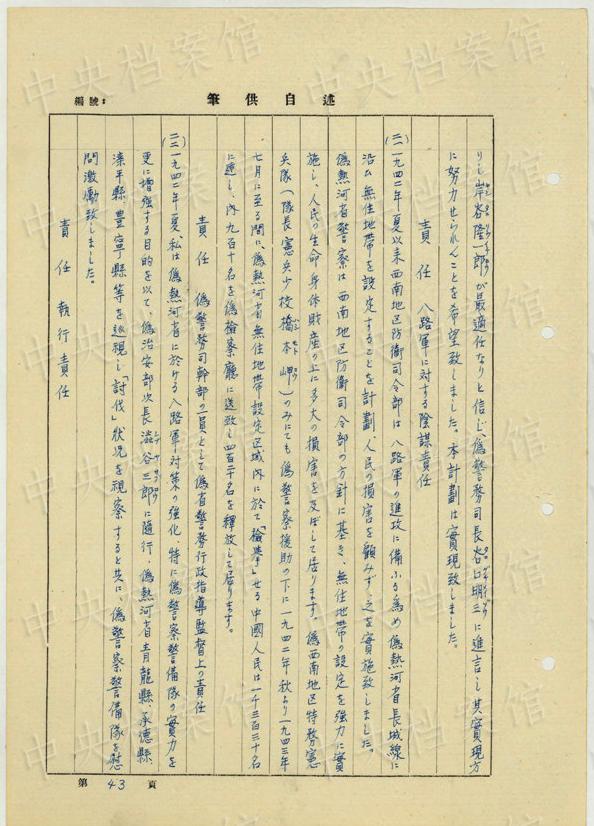 中央档案馆
編號：
筆供自述
りし岸谷隆一郎が最適任なりと信じ、偽警務司長谷口明三に進言し其実現方
に努力せられんことを希望致しました。本計劃は実現致しました。
責任 八路軍に対する陰謀責任
(二)一九四二年夏以来西南地区防衛司令部は八路軍の進攻に備ふる為め偽熱河省長城線に
沿ふ無住地帯を設定することを計劃、人民の損害を顧みず、之を実施致しました。
偽熱河省警察は西南地区防衛司令部の方針に基き、無住地帯の設定を強力に実
施し、人民の生命身体財産の上に多大の損害を及ぼして居ります。偽西南地区特務憲
兵隊(隊長憲兵少校橋本岬)のみにても偽警察援助の下に一九四二年秋より一九四三年
七月に至る間に、偽熱河省無住地帯設定区域内に於て「檢挙」せる中國人民は一千三百三十名
に達し、内九百十名を偽檢察廳に送致し四百二十名を釈放して居ります。
責任 偽警務司幹部の一員として偽省警務行政指導監督上の責任
(三)一九四二年夏、私は偽熱河省に於ける八路軍対策の強化、特に偽警察警備隊の実力を
更に増強する目的を以て、偽治安部次長澁谷三郎に隨行、偽熱河省青龍縣、承德縣
灤平縣、豊寧縣等を巡視し「討伐」状況を視察すると共に、偽警察警備隊を慰
問激勵致しました。
責任 執行責任
第 43 頁